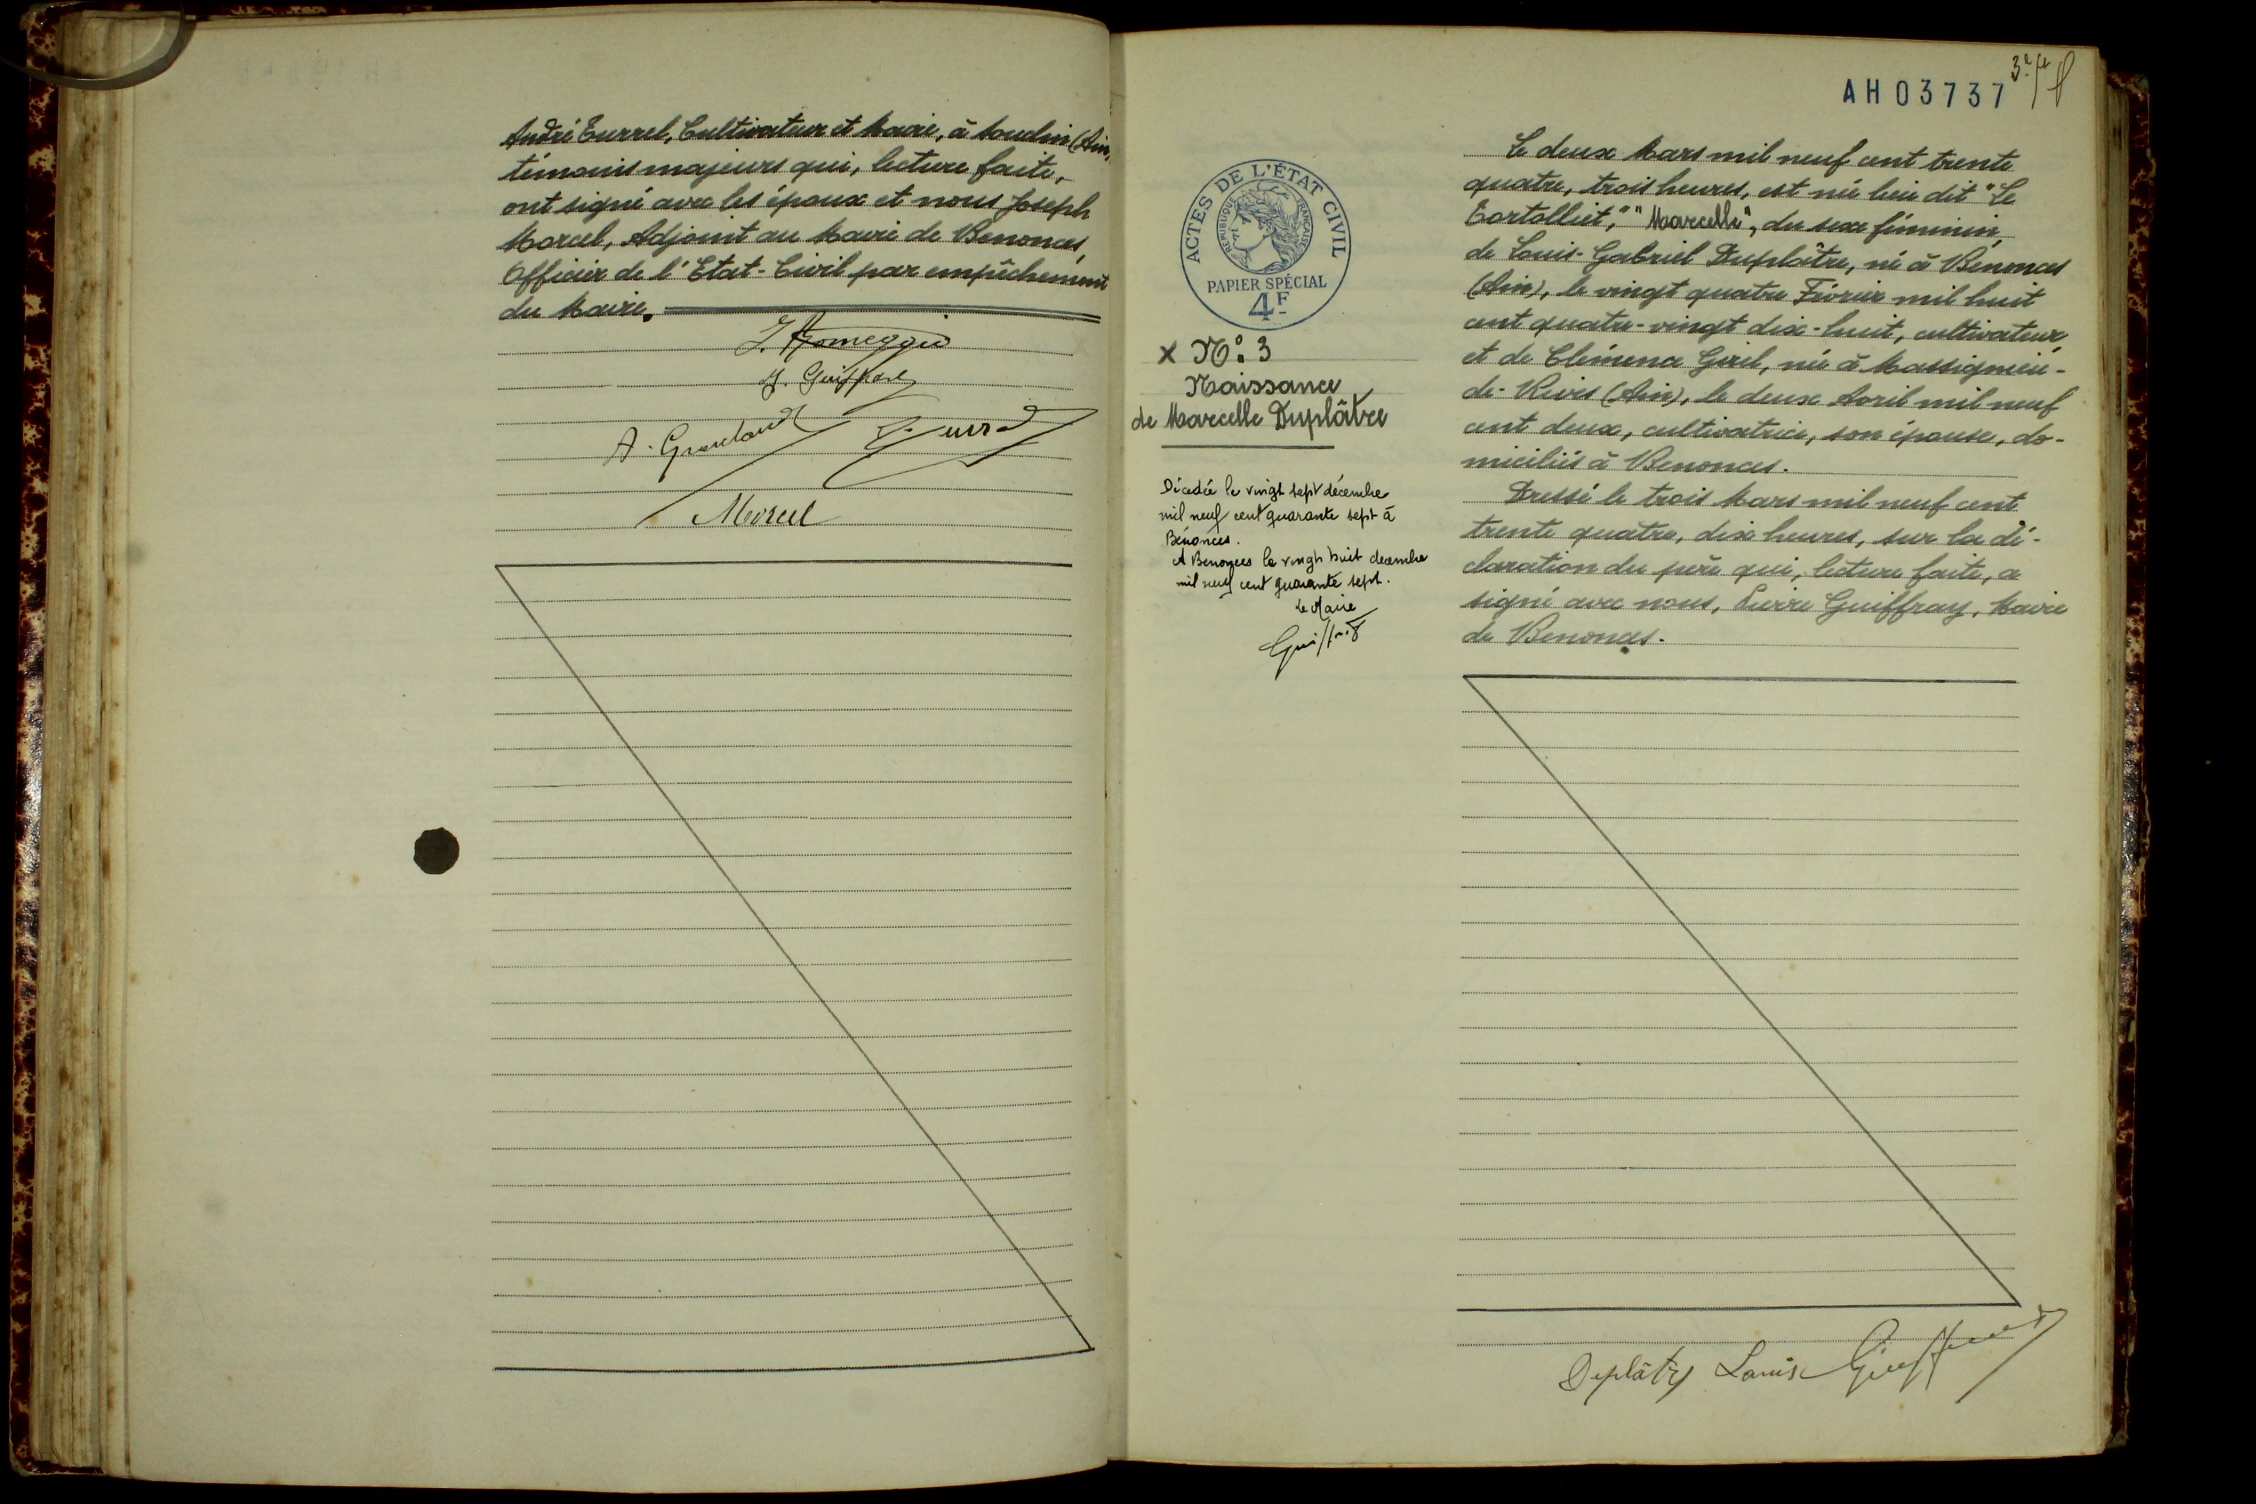 André Turrel, Cultivateur et Maire, à Soudin (Ain,
témoins majeurs qui, lecture faite,
ont signé avec les époux et nous Joseph
Marcel, Adjoint au Maire de Benonces,
Officier de l'Etat-Civil par empêchement
du Maire.
J. Guiffray
Marcel
AH03737
ACTES DE L'ÉTAT CIVIL
RÉPUBLIQUE FRANÇAISE
PAPIER SPÉCIAL
4F
x N°: 3
Naissance
de Marcelle Duplâtre
Décedée le vingt sept décembre
mil neuf cent quarante sept à
Bénonces.
A Benonces le vingt huit decembre
mil neuf cent quarante sept.
Le Maire
Le deux Mars mil neuf cent trente
quatre, trois heures, est née lieu dit "Le
Tortolliet," "Marcelle", du sexe féminin,
de Louis-Gabriel Duplâtre, né à Benonces
(Ain), le vingt quatre Février mil huit
cent quatre-vingt dix-huit, cultivateur,
et de Clémence Giril, née à Massignieu-
de-Rives (Ain), le deux Avril mil neuf
cent deux, cultivatrice, son épouse, do-
miciliés à Benonces.
Dressé le trois Mars mil neuf cent
trente quatre, dix heures, sur la dé-
claration du père qui, lecture faite, a
signé avec nous, Pierre Guiffray, Maire
de Benonces.
Duplâtre Louis Guiffray